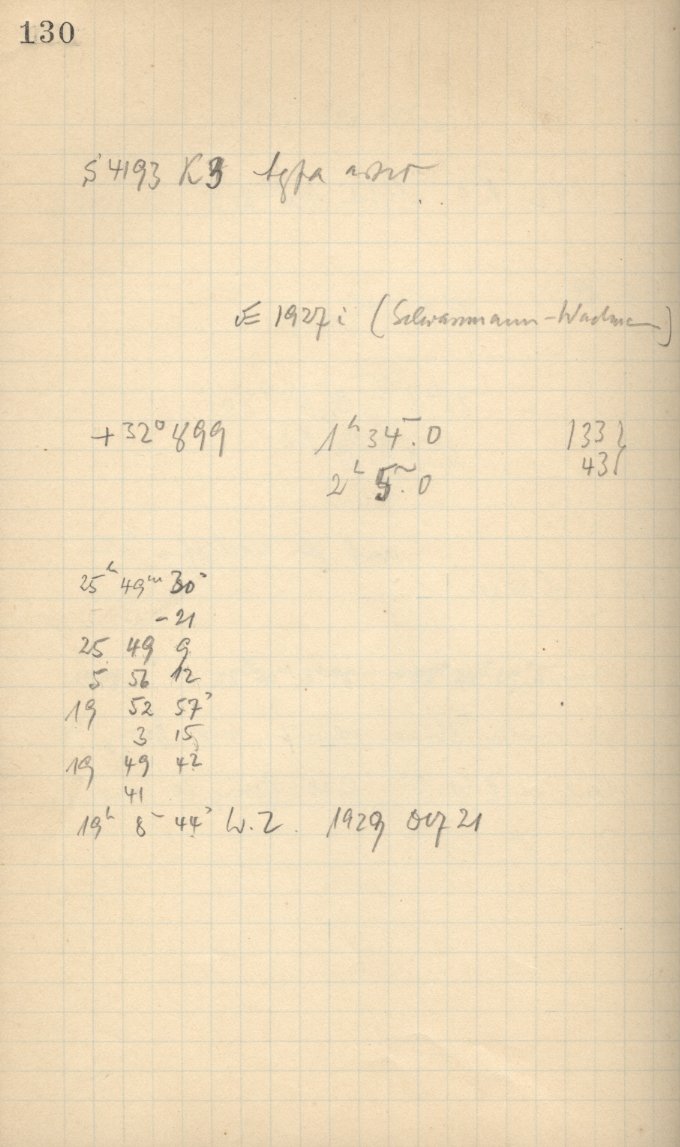 130
S 4193 K3
1927 i (Schwassmann-Wachmann)
+32° 899 1ʰ 34ᵐ.0 133
2ʰ 5ᵐ.0 43
25ʰ 49ᵐ 30ˢ
-21
25 49 9
5 56 12
19 52 57ˢ
3 15
19 49 42
41
19ʰ 8ᵐ 44ˢ W.Z. 1929 21